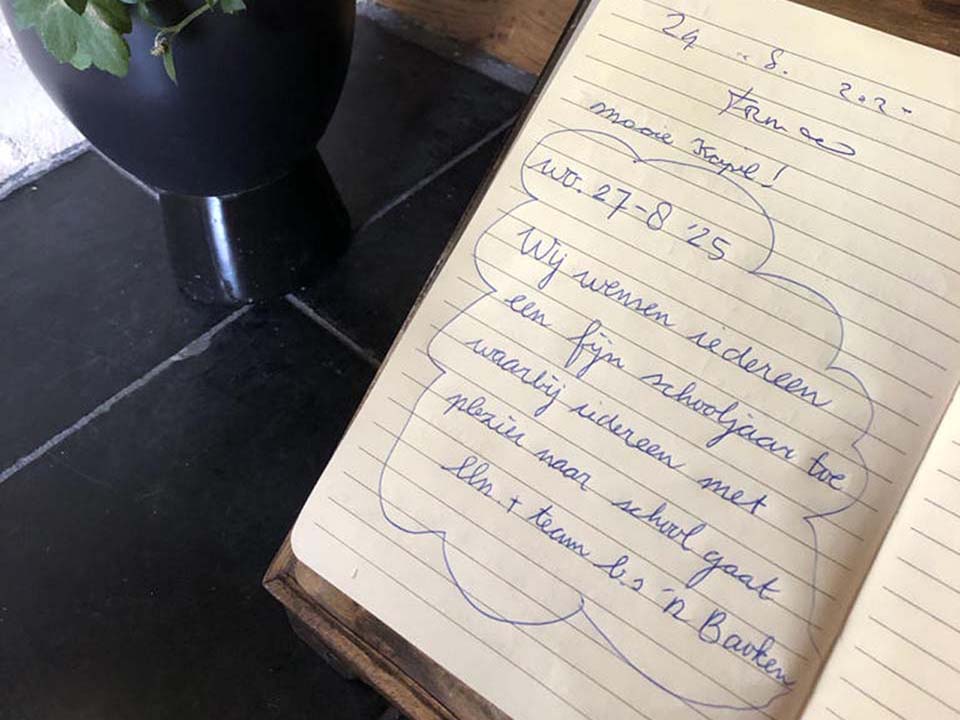 24 - 8. 202-
mooie Kapel!
wo. 27-8 '25
Wij wensen iedereen
een fijn schooljaar toe
waarbij iedereen met
plezier naar school gaat
lln. + team b.s 'n Bavken